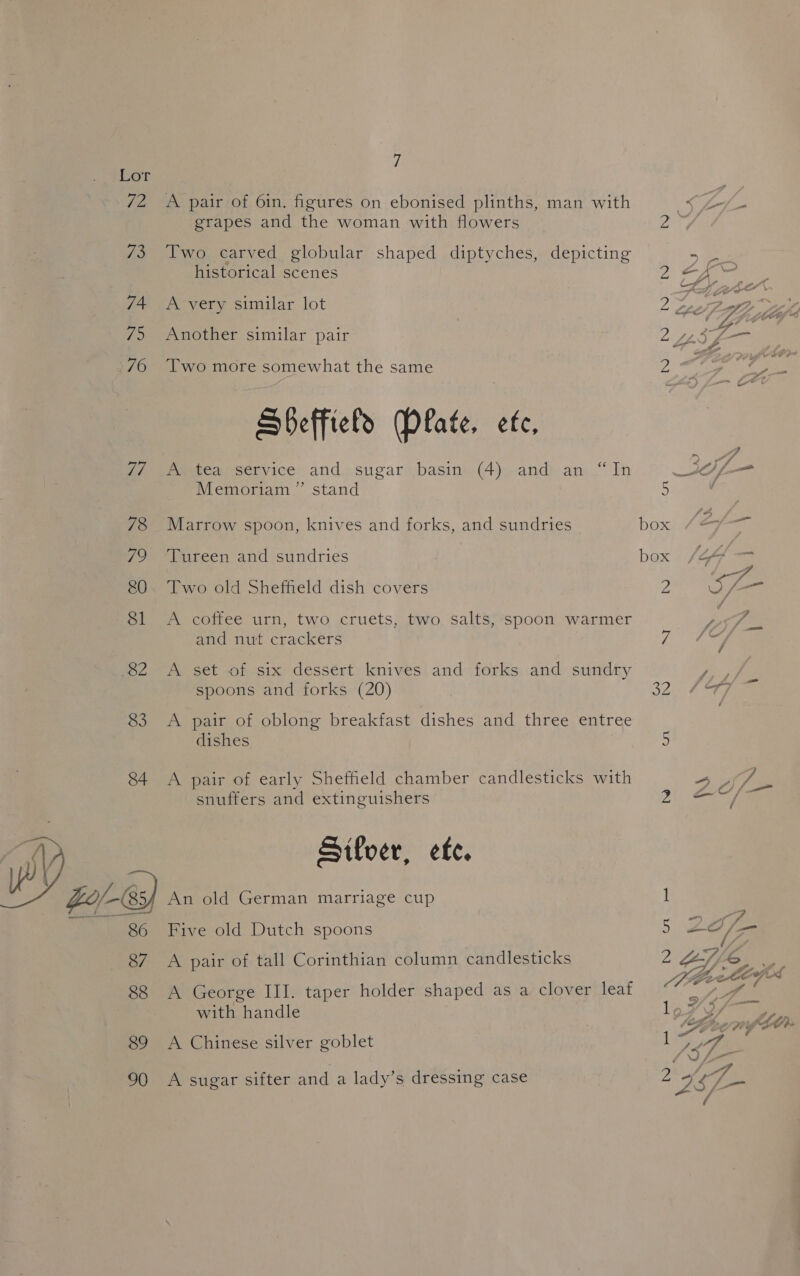 7
Lot
72 A pair of 6in. figures on ebonised plinths, man with
grapes and the woman with flowers 2
73 Two carved globular shaped diptyches, depicting
historical scenes 2
74 A very similar lot 2
75 Another similar pair 2
76 Two more somewhat the same 2
Sheffield Plate, etc,
77 A tea service and sugar basin (4) and an “In
Memoriam” stand 5
78 Marrow spoon, knives and forks, and sundries box
79 Tureen and sundries box
80 Two old Sheffield dish covers 2
81 A coffee urn, two cruets, two salts, spoon warmer
and nut crackers 7
82 A set of six dessert knives and forks and sundry
spoons and forks (20) 32
83 A pair of oblong breakfast dishes and three entree
dishes 5
84 A pair of early Sheffield chamber candlesticks with
snuffers and extinguishers 2
Silver, etc.
85 An old German marriage cup 1
86 Five old Dutch spoons 5 20/-
87 A pair of tall Corinthian column candlesticks 2
88 A George III. taper holder shaped as a clover leaf
with handle 1
89 A Chinese silver goblet 1
90 A sugar sifter and a lady’s dressing case 2